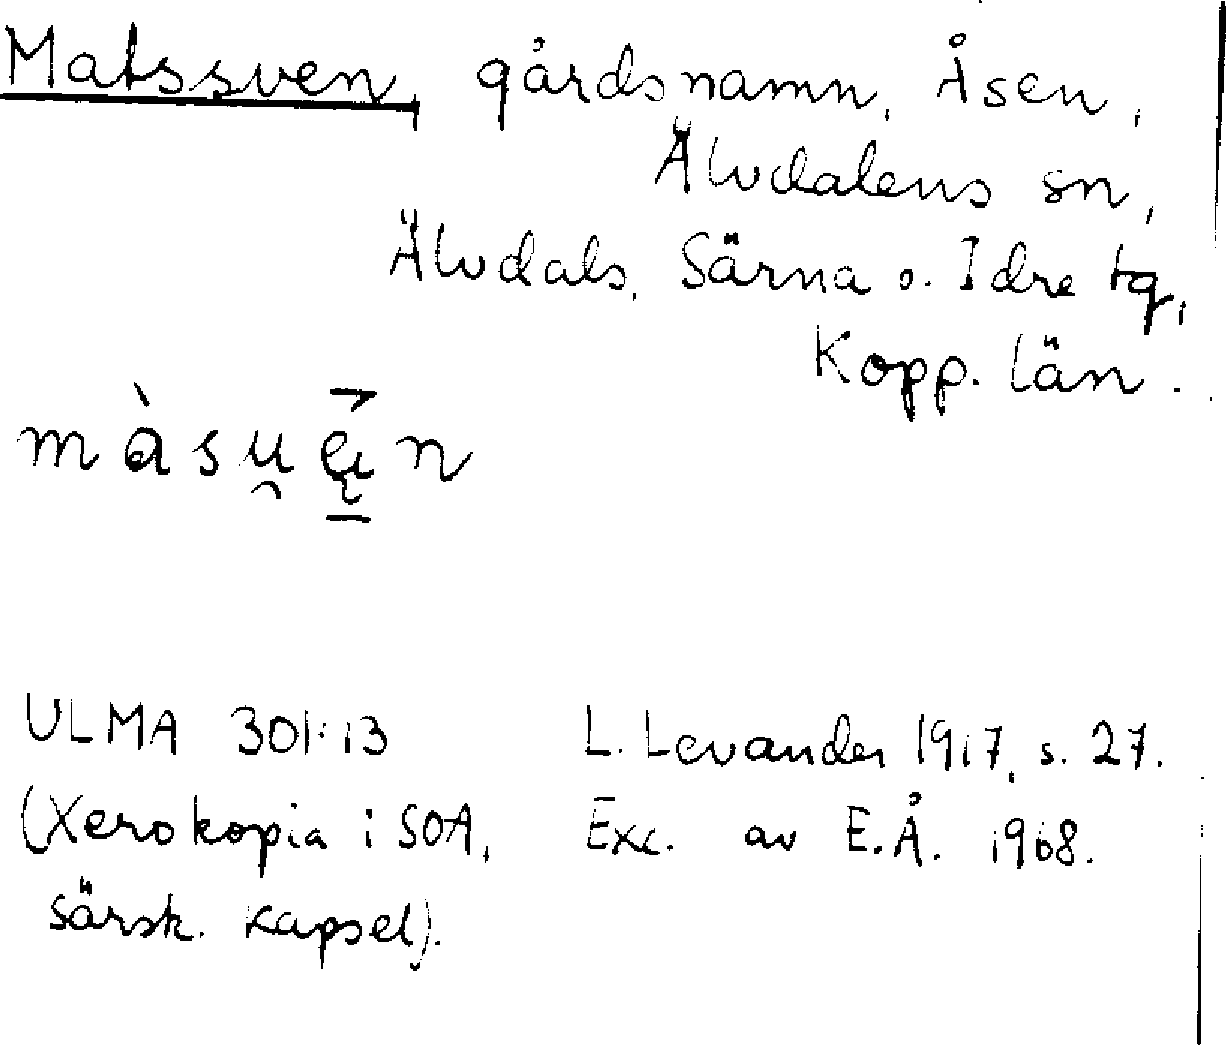 Matssven, gårdsnamn, Åsen,
Älvdalens sn,
Älvdals, Särna o. Idre tg,
Kopp. län.
ULMA 301:13
(Xerokopia i SOA,
särsk. kapsel).
L. Levander 1917, s. 27.
Exc. av E.Å. 1968.